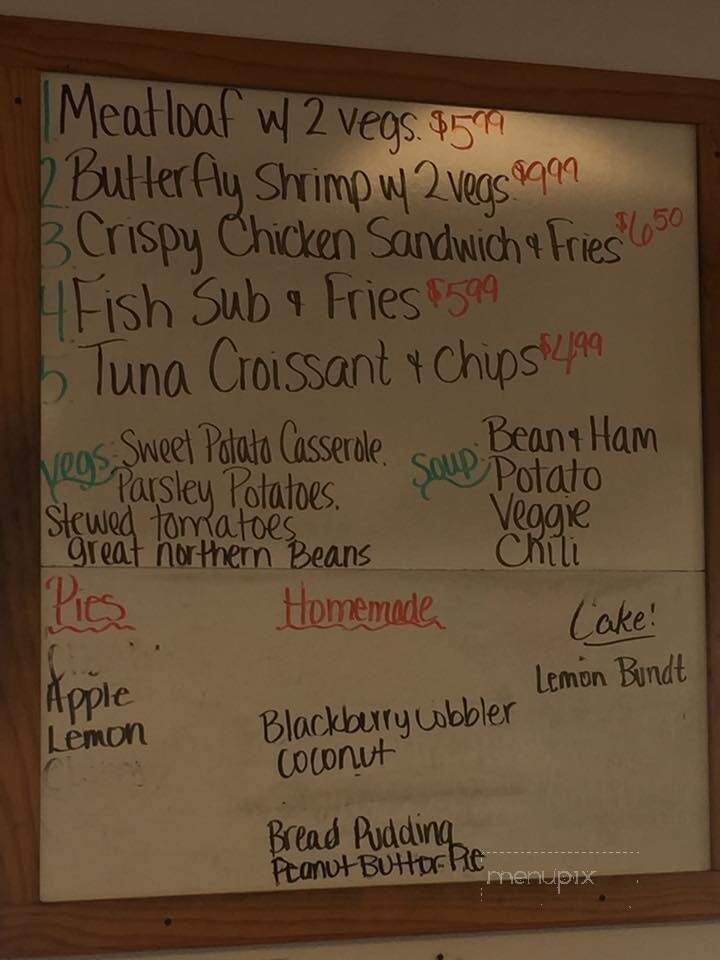 1 Meatloaf w/ 2 vegs. $5.99
2 Butterfly Shrimp w/ 2 vegs. $9.99
3 Crispy Chicken Sandwich & Fries $6.50
4 Fish Sub & Fries $5.99
5 Tuna Croissant & Chips $4.99
Vegs: Sweet Potato Casserole.
Parsley Potatoes.
Stewed tomatoes
great northern Beans
Soup: Bean & Ham
Potato
Veggie
Chili
Pies
Apple
Lemon
Homemade
Blackburry Cobbler
Coconut
Bread Pudding
Peanut Butter Pie
Cake!
Lemon Bundt
menupix